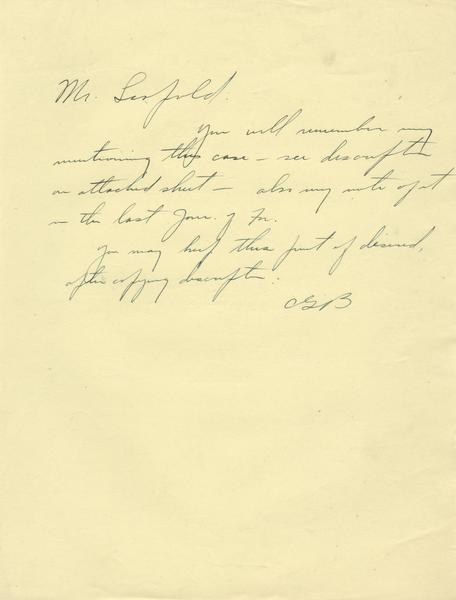 Mr. Leopold.
You will remember my
mentioning this case – see descript
on attached sheet – also my note of it
in the last Jour. of For.
You may keep this print if desired,
after copying descriptn.
CGB